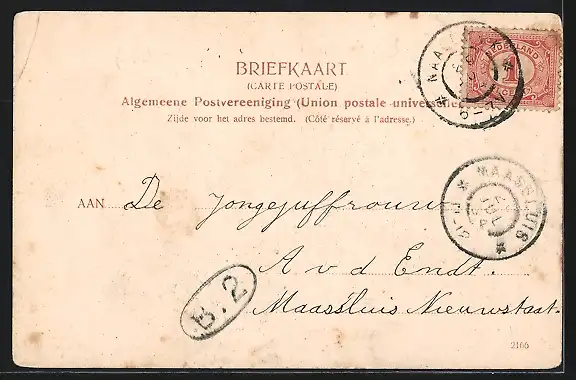 BRIEFKAART
(CARTE POSTALE)
Algemeene Postvereeniging (Union postale universelle)
Zijde voor het adres bestemd. (Côté réservé à l'adresse.)
NEDERLAND
1
MAASSLUIS
JUL
AAN De Jongejuffrouw
A v d Endt.
Maassluis Nieuwstaat.
B. 2
2166